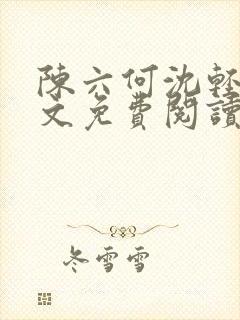 陳六何沈輕
文免費閱讀
冬雪雪